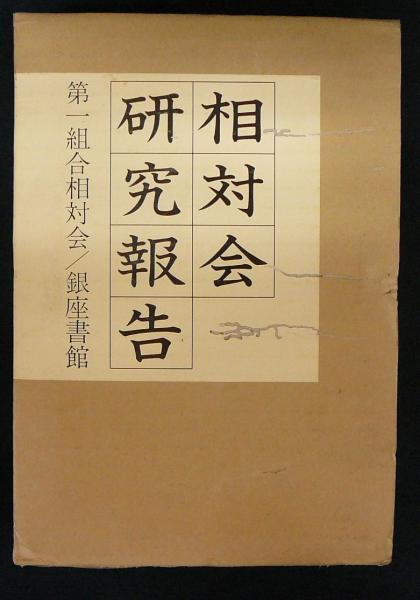 相対会
研究報告
第一組合相対会/銀座書館